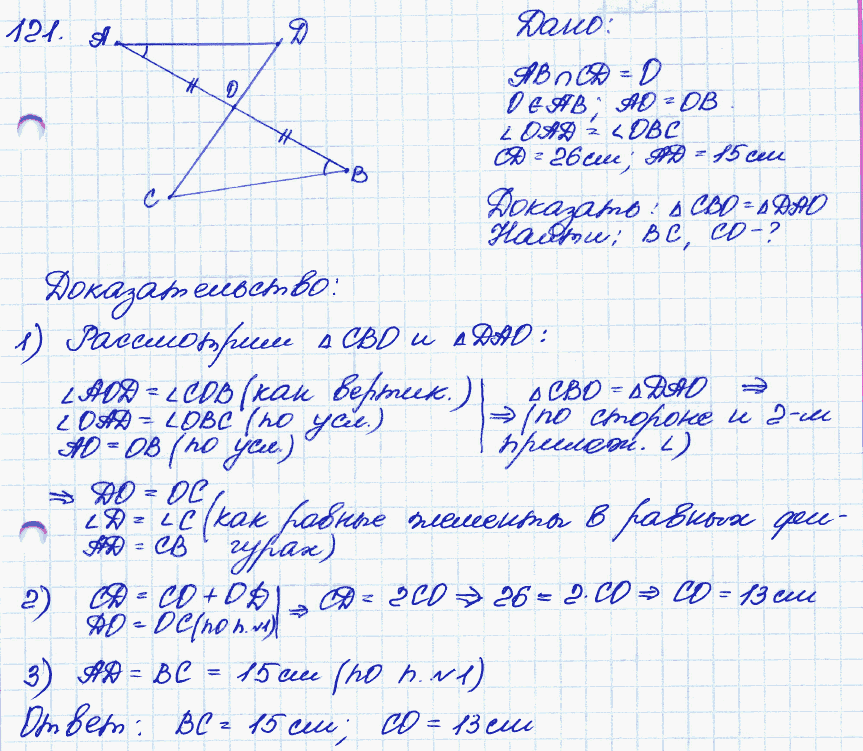 121.
A
D
O
C
B
Дано:
AB ∩ CD = O
O ∈ AB; AO = OB
∠OAD = ∠OBC
CD = 26 см; AD = 15 см
Доказать: △CBO = △DAO
Найти: BC, CO - ?
Доказательство:
1) Рассмотрим △CBO и △DAO:
∠AOD = ∠COB (как вертик.)
∠OAD = ∠OBC (по усл.)
AO = OB (по усл.)
⇒ △CBO = △DAO ⇒
(по стороне и 2-м
прилеж. ∠)
⇒ DO = OC
∠D = ∠C (как равные элементы в равных фи-
AD = CB гурах)
2) CD = CO + OD
DO = OC (по п. №1)
⇒ CD = 2CO ⇒ 26 = 2·CO ⇒ CO = 13 см
3) AD = BC = 15 см (по п. №1)
Ответ: BC = 15 см; CO = 13 см